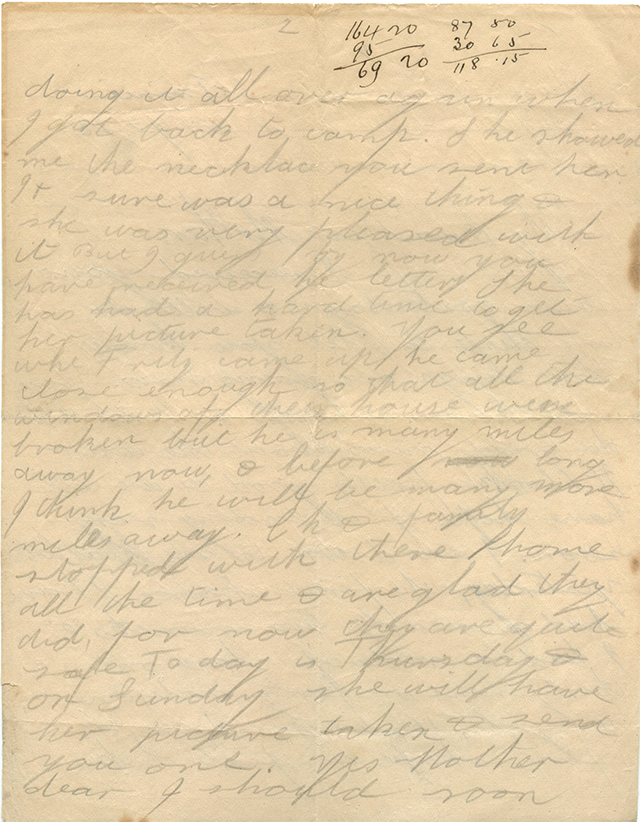 2
164 20 87 50
95 30 65
69 20 118 .15
doing it all over again when
I got back to camp. She showed
me the necklace you sent her
It sure was a nice thing &
she was very pleased with
it But I guess by now you
have received he letter She
has had a hard time to get
her picture taken. You see
whe Fritz came up he came
close enough so that all the
windows of they house were
broken but he is many miles
away now, & before long
I think he will be many more
miles away. & family
stopped with there home
all the time & are glad they
did, for now they are quite
safe To day is Thursday &
on Sunday she will have
her picture taken & send
you one. Yes Mother
dear I should soon